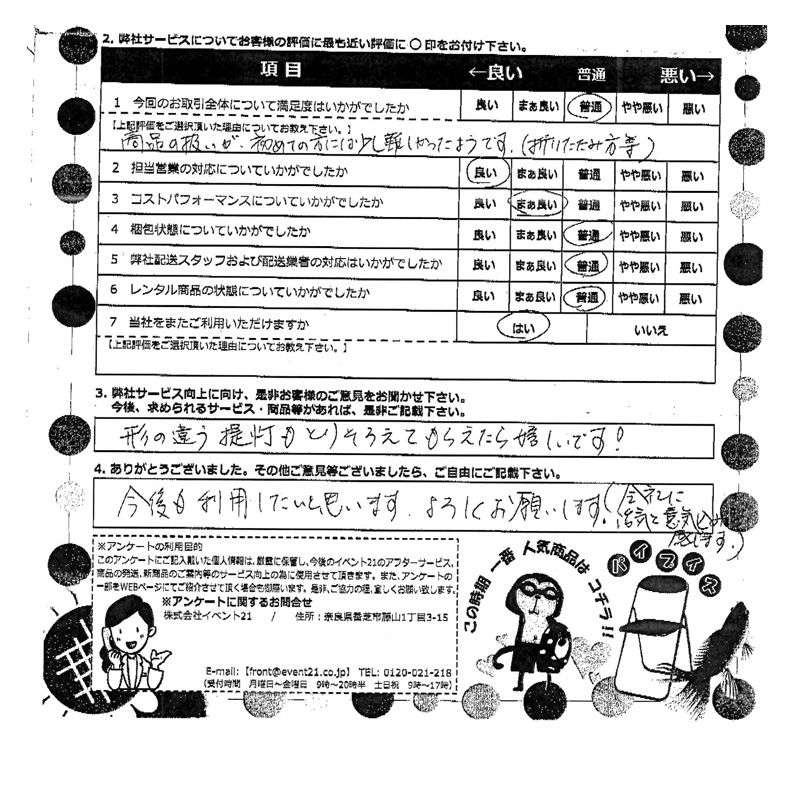 2. 弊社サービスについてお客様の評価に最も近い評価に ○ 印をお付け下さい。
項目 ←良い 普通 悪い→
1 今回のお取引全体について満足度はいかがでしたか 良い まぁ良い 普通 やや悪い 悪い
【上記評価をご選択頂いた理由についてお教え下さい。】
商品の扱いが、初めての方には少し難しかったようです。(折りたたみ方等)
2 担当営業の対応についていかがでしたか 良い まぁ良い 普通 やや悪い 悪い
3 コストパフォーマンスについていかがでしたか 良い まぁ良い 普通 やや悪い 悪い
4 梱包状態についていかがでしたか 良い まぁ良い 普通 やや悪い 悪い
5 弊社配送スタッフおよび配送業者の対応はいかがでしたか 良い まぁ良い 普通 やや悪い 悪い
6 レンタル商品の状態についていかがでしたか 良い まぁ良い 普通 やや悪い 悪い
7 当社をまたご利用いただけますか はい いいえ
【上記評価をご選択頂いた理由についてお教え下さい。】
3. 弊社サービス向上に向け、是非お客様のご意見をお聞かせ下さい。
今後、求められるサービス・商品等があれば、是非ご記載下さい。
形の違う提灯もとりそろえてもらえたら嬉しいです!
4. ありがとうございました。その他ご意見等ございましたら、ご自由にご記載下さい。
今後も利用したいと思います。よろしくお願いします。
(会社に
活気と意気込みを
感じます。)
※アンケートの利用目的
このアンケートにご記入戴いた個人情報は、厳重に保管し、今後のイベント21のアフターサービス、
商品の発送、新商品のご案内等のサービス向上の為に使用させて頂きます。また、アンケートの
一部をWEBページにてご紹介させて頂く場合も御座います。是非、ご協力の程、宜しくお願い致します。
※アンケートに関するお問合せ
株式会社イベント21 / 住所:奈良県香芝市藤山1丁目3-15
E-mail:【front@event21.co.jp】 TEL: 0120-021-218
(受付時間 月曜日~金曜日 9時~20時半 土日祝 9時~17時)
この時期 一番 人気商品は コチラ!!
パイプイス